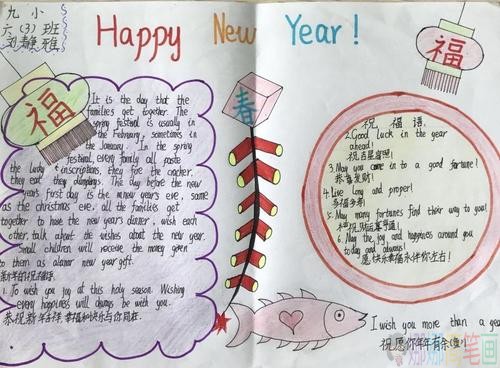 九小
六(3)班
刘静雅
Happy New Year!
福
福
春
It is the day that the
families get together. The
spring festival is usually in
the February, sometimes in
the January. In the spring
festival, every family all paste
the Lucky inscriptions, they fire the cracker,
they eat they dumplings. The day before the new
years first day is the mnew years eve, same
as the christmas eve. all the families get
together to have the new years dinner, wish each
other talk about the wishes about the new year.
Small children will receive the money given
to them as alunar new year gift.
1. To wish you joy at this holy season. Wishing
every happiness will always be with you.
恭祝新年吉祥,幸福和快乐与你同在.
祝福语.
2.Good luck in the year
ahead!
祝吉星高照!
3.May you come in to a good fortune!
恭喜发财!
4.Live long and proper!
多福多寿!
5. May many fortunes find their way to you!
祝财运亨通!
6. May the joy and happiness around you
today and always!
愿快乐幸福永伴你左右!
I wish you more than a year
祝愿你年年有余